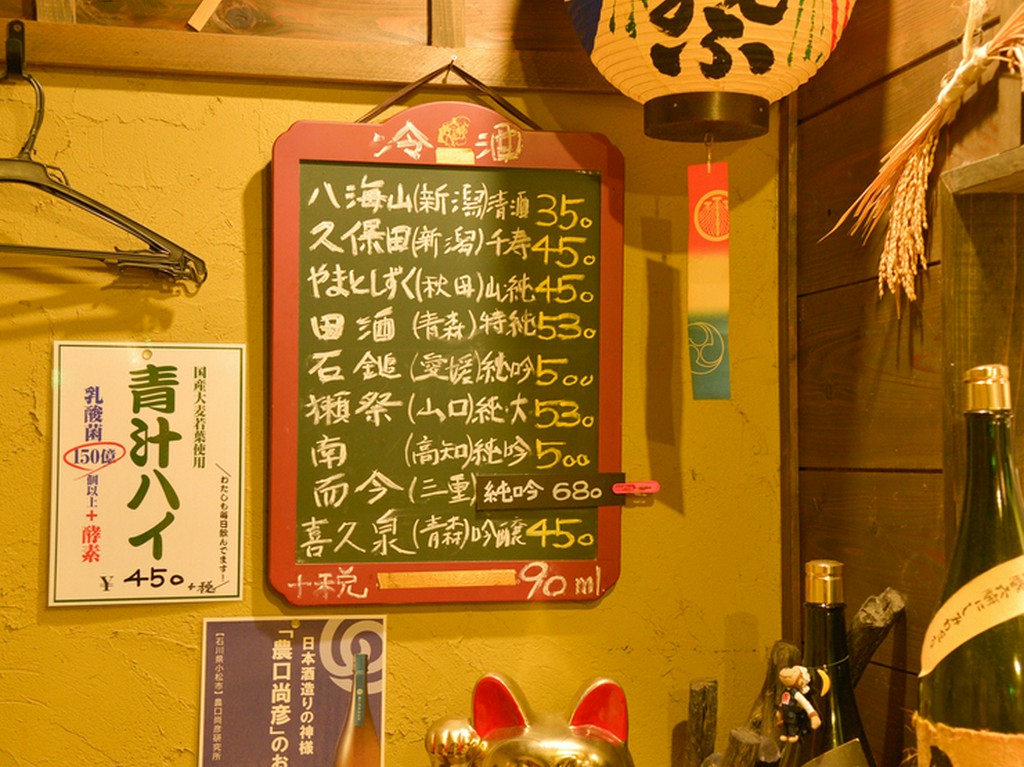 冷酒
八海山(新潟)清酒 350
久保田(新潟)千寿 450
やまとしずく(秋田)山純 450
田酒(青森)特純 530
石鎚(愛媛)純吟 500
獺祭(山口)純・大 530
南(高知)純吟 500
而今(三重)純吟 680
喜久泉(青森)吟醸 450
+税 90ml
国産大麦若葉使用
青汁ハイ
乳酸菌150億個以上+酵素
わたしも毎日飲んでます!
¥450+税
日本酒造りの神様
「農口尚彦」のお
【石川県小松市】農口尚彦研究所